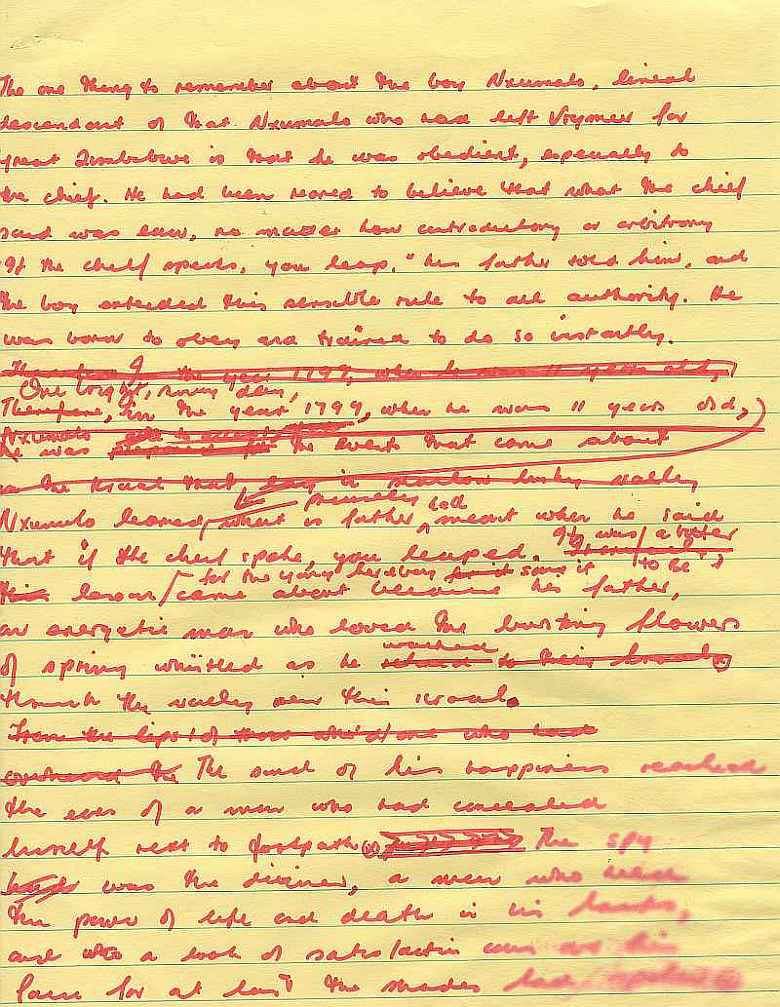 The one thing to remember about the boy Nxumalo, lineal
descendant of that Nxumalo who had left Vrymeer for
great Zimbabwe is that he was obedient, especially to
the chief. He had been reared to believe that what the chief
said was law, no matter how contradictory or arbitrary
"If the chief speaks, you leap," his father told him, and
the boy extended this sensible rule to all authority. He
was born to obey and trained to do so instantly.
the year 1799, when he was 11 years old,
One day,
Therefore, in the year 1799, when he was 11 years old,
Nxumalo
he was the event that came about
in the kraal that, in shallow valley
precisely had
Nxumalo learned what is father meant when he said
that if the chief spoke, you leaped. It was a bitter
for the young to be
this lesson came about because his father,
an energetic man who loved the bursting flowers
of spring whistled as he walked to their kraal
through the valley near their kraal.
From the lips of those who
overheard the The sound of his happiness reached
the ears of a man who had concealed
himself next to footpath The spy
was the diviner, a man who held
the power of life and death in his hands,
and who a look of satisfaction came
face for at last the shades had spoken